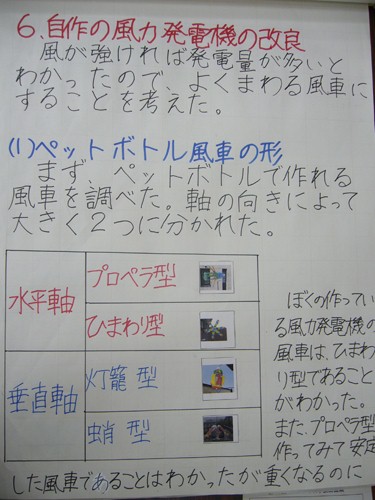 6、自作の風力発電機の改良
風が強ければ発電量が多いと
わかったので、よくまわる風車に
することを考えた。
(1)ペットボトル風車の形
まず、ペットボトルで作れる
風車を調べた。軸の向きによって
大きく2つに分かれた。
水平軸
プロペラ型
ひまわり型
垂直軸
灯籠型
蛸型
ぼくの作ってい
る風力発電機の
風車は、ひまわ
り型であること
がわかった。
また、プロペラ型
作ってみて安定
した風車であることはわかったが重くなるのに